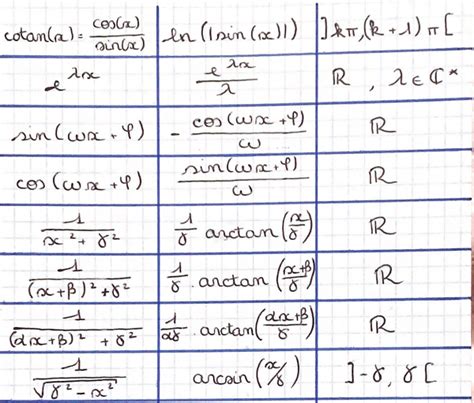 cotan(x) = cos(x)/sin(x) | ln(|sin(x)|) | ]kπ,(k+1)π[
e^{λx} | e^{λx}/λ | ℝ , λ ∈ ℂ*
sin(ωx+φ) | - cos(ωx+φ)/ω | ℝ
cos(ωx+φ) | sin(ωx+φ)/ω | ℝ
1/(x²+γ²) | 1/γ arctan(x/γ) | ℝ
1/((x+β)²+γ²) | 1/γ . arctan((x+β)/γ) | ℝ
1/((αx+β)²+γ²) | 1/(αγ) . arctan((αx+β)/γ) | ℝ
1/√(γ²-x²) | arcsin(x/γ) | ]-γ, γ[